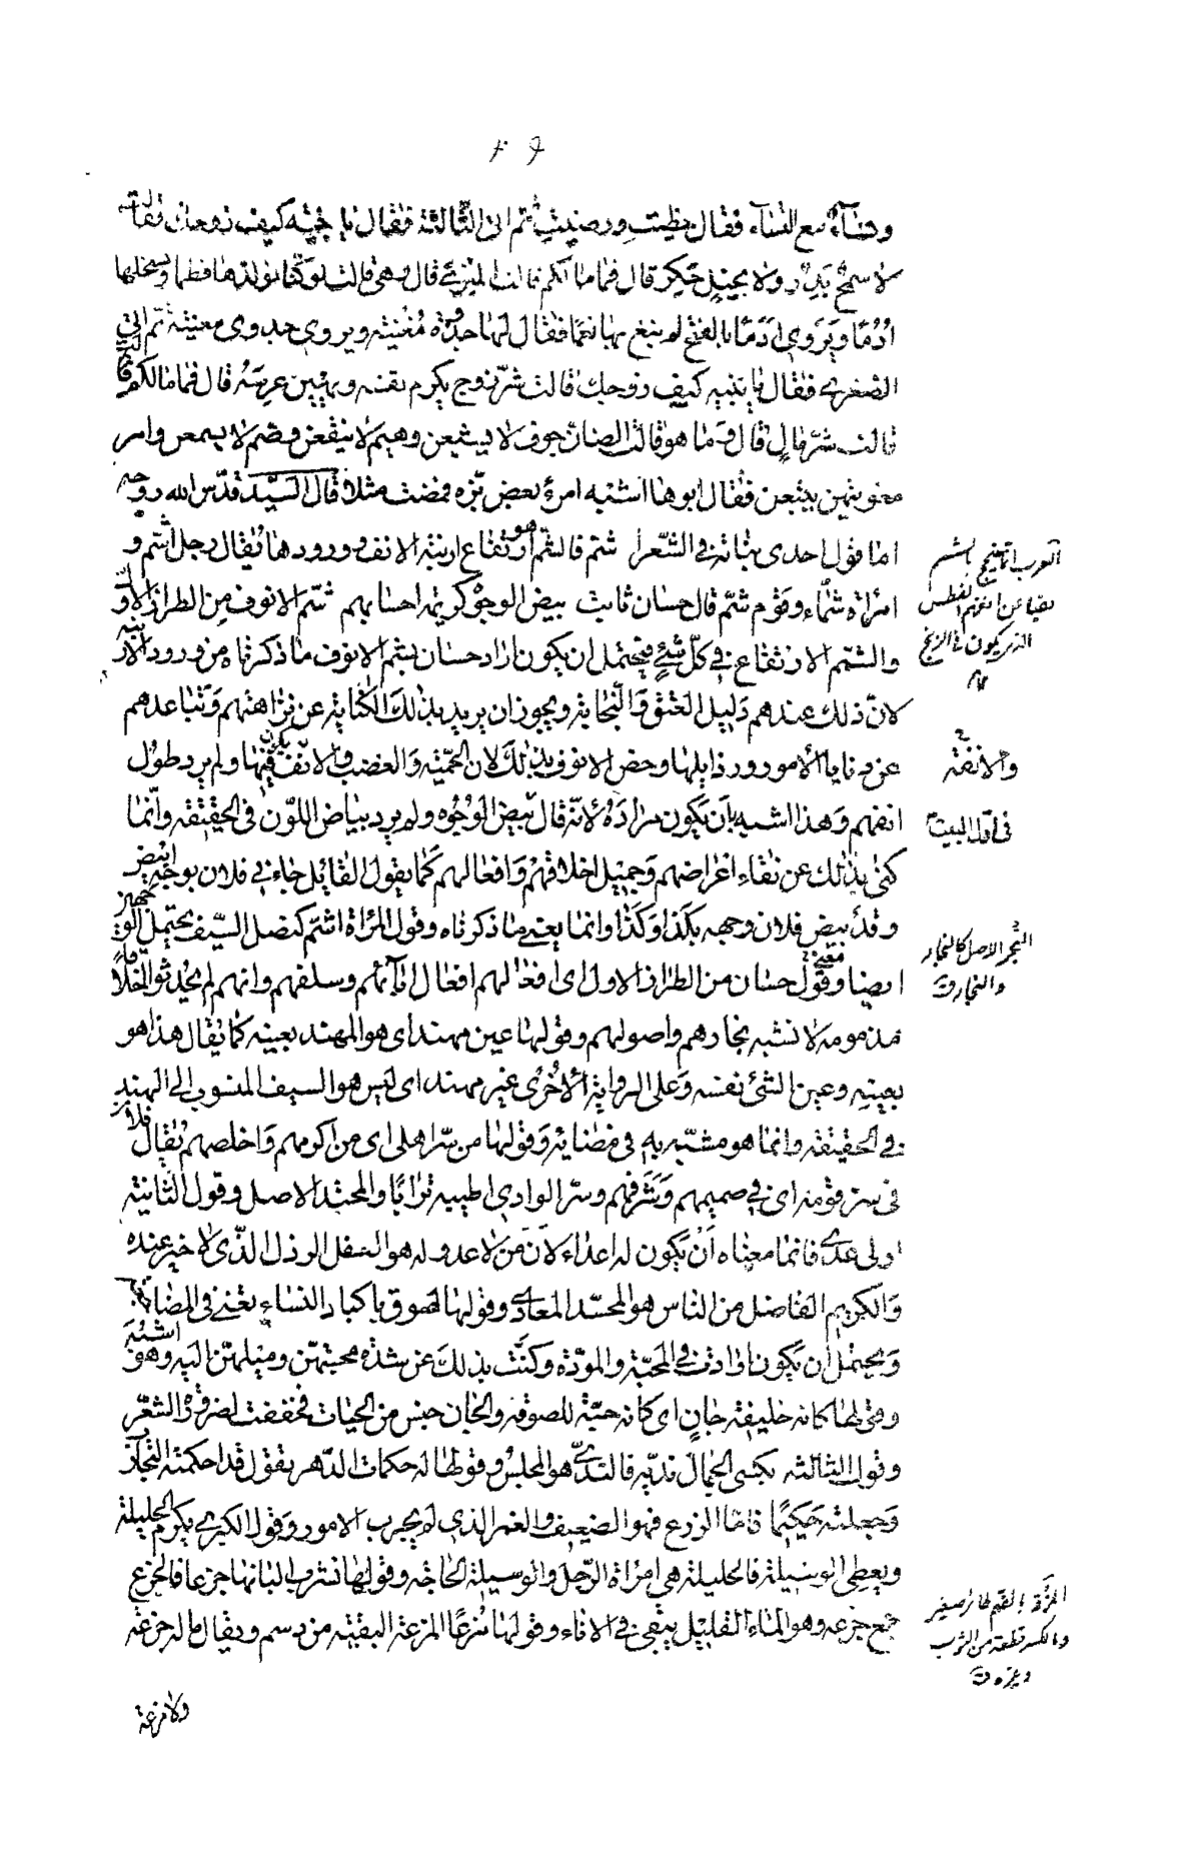 ونساء مع النساء فقال حظيت ورضيت ثم اتى الثالثة فقال يا بنية كيف زوجك فقالت
لا سمح بذر ولا بخيل حكر قال فما مالكم قالت المعزى قال وما هى قالت لو كنا نولدها فطما ونسلخها
ادما ويروى ادما بالفتح لم نبغ بها نعما فقال لها جذوة مغنية ويروى جدوى مغنية ثم اتى
الصغرى فقال يا بنية كيف زوجك قالت شر زوج يكرم نفسه ويهين عرسه قال فما مالكم
قالت شر مال قال وما هو قالت الضان جوف لا يشبعن وهيم لا ينقعن وصم لا يسمعن وامر
مغويتهن يتبعن فقال ابوها اشبه امرء بعض بزه فمضت مثلا قال السيد قدس الله روحه
اما قول احدى بناته فى الشعر اشم فالشم هو ارتفاع ارنبة الانف وورودها يقال رجل اشم و
امراة شماء وقوم شم قال حسان بن ثابت بيض الوجوه كريمة احسابهم شم الانوف من الطراز الاول
والشمم الارتفاع فى كل شئ فيحتمل ان يكون اراد حسان بشم الانوف ما ذكرناه من ورود الارنبة
لان ذلك عندهم دليل العتق والنجابة ويجوز ان يريد بذلك الكناية عن نزاهتهم وتباعدهم
عن دنايا الأمور ورذايلها وخص الانوف بذلك لان الحمية والغضب والانف يكون فيها ولم يرد طول
انفهم وهذا اشبه بان يكون مراده لانه قال بيض الوجوه ولم يرد بياض اللون فى الحقيقة وانما
كنى بذلك عن نقاء اعراضهم وجميل اخلاقهم وافعالهم كما يقول القائل جاءنى فلان بوجه ابيض
وقد بيض فلان وجهه بكذا وكذا وانما يعنى ما ذكرناه وقول المراة اشم كنصل السيف يحتمل الوجهين
ايضا ومعنى قول حسان من الطراز الاول اى افعالهم افعال آبائهم وسلفهم وانهم لم يحدثوا اخلاقا
مذمومة لا تشبه نجارهم واصولهم وقولها عين مهند اى هو المهند بعينه كما يقال هذا هو
بعينه وعين الشئ نفسه وعلى الرواية الأخرى غير مهند اى ليس هو السيف المنسوب الى الهند
فى الحقيقة وانما هو مشبه به فى مضائه وقولها من سر اهلى اى من اكرمهم واخلصهم يقال فلان
فى سر قومه اى فى صميمهم وشرفهم وسر الوادى اطيبه ترابا والمحتد الاصل وقول الثانية
اولى عدى فانما معناه ان يكون له اعداء لان من لا عدو له هو السفل الرذل الذى لا خير عنده
والكريم الفاضل من الناس هو المحسد المعادى وقولها لصوق باكباد النساء يعنى فى المضاجعة
ويحتمل ان يكون ارادت فى المحبة والمودة وكنت بذلك عن شدة محبتهن وميلهن اليه وهو اشبه
وقولها كانه خليفة جان اى كانه حية للصوقه والجان جنس من الحيات فخففت لضرورة الشعر
وقول الثالثة يكسى الجمال نديه فالندى هو المجلس وقولها له حكمات الدهر يقول قد احكمته التجارب
وجعلته حكيما فاما الزرع فهو الضعيف والغمر الذى لم يجرب الامور وقول الكبرى يكرم الحليلة
ويعطى الوسيلة فالحليلة هى امراة الرجل والوسيلة الحاجة وقولها نشرب البانها جزعا فالجزع
جمع جزعة وهو الماء القليل يبقى فى الاناء وقولها مزعا المزعة البقية من دسم ويقال ما له جزعة
ولا مزعة
العرب انما تمدح بالشم
والانفة
فى اول البيت
النجر الاصل كالنجار
والنجار ق